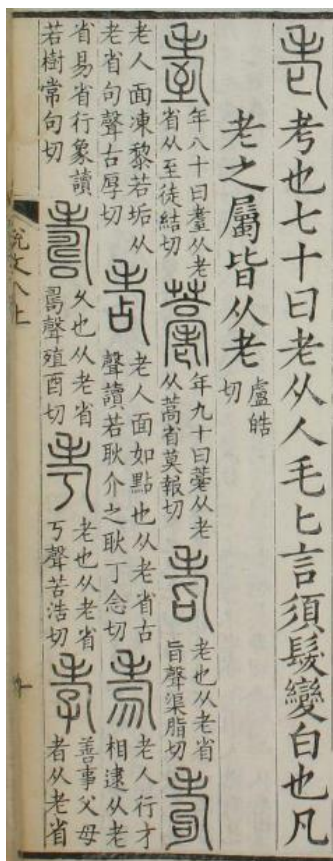 老考也七十曰老从人毛匕言須髮變白也凡
老之屬皆从老盧皓切
耋年八十曰耋从老省从至徒結切𦽡年九十曰𦽡从老从蒿省莫報切耆老也从老省旨聲渠脂切耇
老人面凍黎若垢从老省句聲古厚切𦒻老人面如點也从老省占聲讀若耿介之耿丁念切𦒱老人行才相逮从老
省易省行象讀若樹常句切壽久也从老省𠷎聲殖酉切考老也从老省丂聲苦浩切孝善事父母者从老省
說文八上